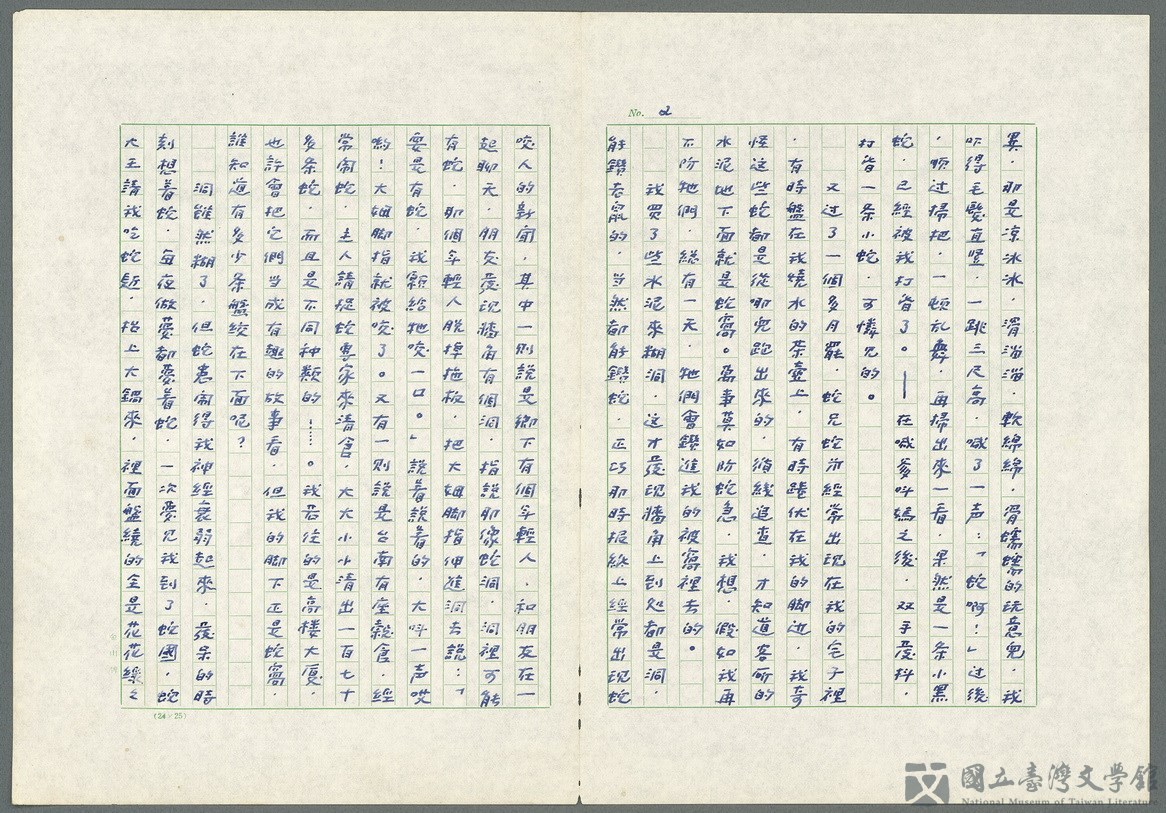 No. 2
異，那是凉冰冰，滑溜溜，軟綿綿，滑蠕蠕的玩意兒，我
吓得毛髮直豎，一跳三尺高，喊了一声：「蛇啊！」过後
，順过掃把，一頓乱舞，再掃出來一看，果然是一条小黑
蛇，已經被我打昏了。——在喊爹叫媽之後，双手發抖，
打昏一条小蛇，可憐兮的。
又过了一個多月罷，蛇兄蛇弟經常出現在我的屯子裡
，有時盤在我燒水的茶壺上，有時蜷伏在我的脚边，我奇
怪这些蛇都是從哪兒跑出來的，循綫追查，才知道客所的
水泥地下面就是蛇窩。萬事莫如防蛇急，我想，假如我再
不防牠們，總有一天，牠們會鑽進我的被窩裡去的。
我買了些水泥來糊洞，这才發現牆角上到処都是洞，
能鑽老鼠的，当然都能鑽蛇，正巧那時报紙上經常出現蛇
咬人的新聞，其中一則說是鄉下有個年輕人，和朋友在一
起聊天，朋友發現牆角有個洞，指說那像蛇洞，洞裡可能
有蛇，那個年輕人脱掉拖板，把大姆脚指伸進洞去說：「
要是有蛇，我願給牠咬一口。」說着說着的，大叫一声哎
喲！大姆脚指就被咬了。又有一則說是台南有座穀倉，經
常鬧蛇，主人請捉蛇專家來清倉，大大小小清出一百七十
多条蛇，而且是不同种類的……。我若住的是高楼大廈，
也許會把它們当成有趣的故事看，但我的脚下正是蛇窩，
誰知道有多少条盤絞在下面呢？
洞雖然糊了，但蛇患鬧得我神經衰弱起來，發呆的時
刻想着蛇，每夜做夢都夢着蛇，一次夢見我到了蛇國，蛇
大王請我吃蛇筵，抬上大鍋來，裡面盤繞的全是花花綠之
(24×25)
國立臺灣文學館
National Museum of Taiwan Literature